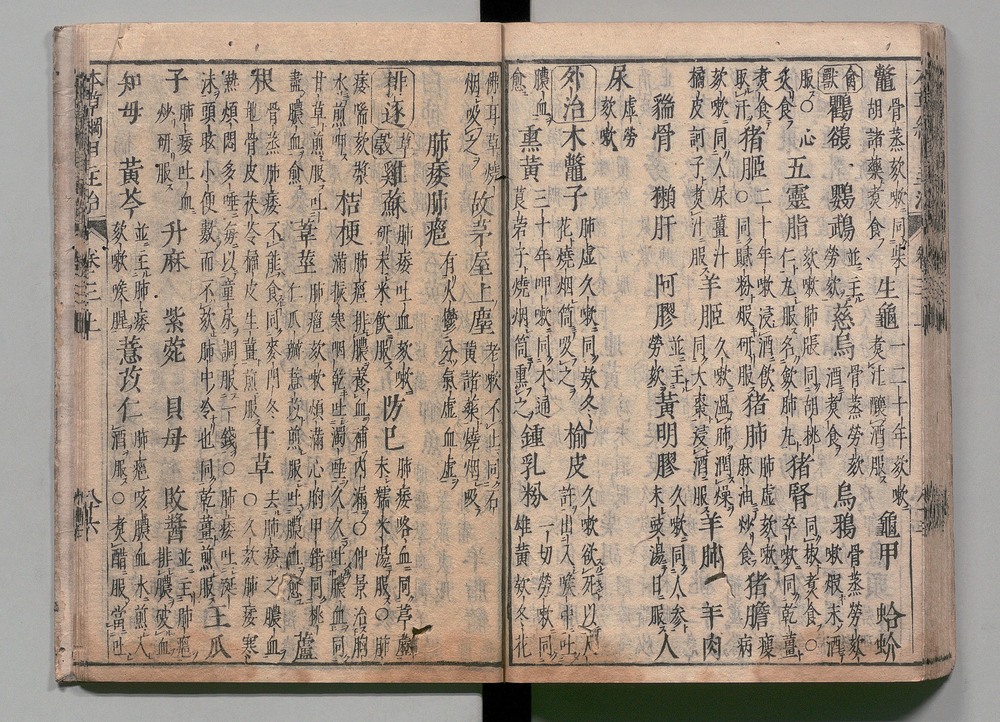 鼈骨蒸欬嗽同柴胡諸藥煮食生龜一二十年欬嗽煮汁釀酒服龜甲 蛤蚧
禽獸鸜鵒 鸚鵡並主勞欬慈烏骨蒸勞欬酒煮食烏鴉骨蒸勞欬嗽煅末酒
服○心炙食五靈脂欬嗽肺脹同胡桃仁丸服名斂肺丸猪腎同椒煮食○卒嗽同乾薑
煮食取汗猪胰二十年嗽浸酒飲○同膩粉煅研服猪肺肺虚欬嗽麻油炒食猪膽瘦病
欬嗽同人尿薑汁橘皮訶子煮汁服羊胰久嗽温肺潤燥同大棗浸酒服羊肺 羊肉
貒骨 獺肝 阿膠並主勞欬黄明膠久嗽同人參末豉湯日服人
尿虚勞欬嗽
外治木鼈子肺虚久嗽同欵冬花燒烟筒吸之榆皮久嗽欲死以尺許出入喉中吐
膿血愈熏黄三十年呷嗽同木通莨菪子燒烟筒熏之鍾乳粉一切勞嗽同雄黄欵冬花
佛耳草燒烟吸之故茅屋上塵老嗽不止同石黄諸藥燒烟吸
肺痿肺癰有火鬱分氣虚血虚
排逐草穀雞蘇肺痿吐血欬嗽研末米飲服防已肺痿咯血同葶藶末糯米湯服○肺
痿喘欬漿水煎呷桔梗肺癰排膿養血補内漏○仲景治胸滿振寒咽乾吐濁唾久久吐膿血同
甘草煎服吐盡膿血愈葦莖肺癰欬嗽煩滿心胸甲錯同桃仁瓜瓣薏苡煎服吐膿血愈蘆
根骨蒸肺痿不能食同麥門冬地骨皮茯苓橘皮生薑煎服甘草去肺痿之膿血○久欬肺痿寒
熱煩悶多唾每以童尿調服一錢○肺痿吐涎沫頭眩小便數而不欬肺中冷也同乾薑煎服王瓜
子肺痿吐血炒研服升麻 紫菀 貝母 敗醬並主肺癰排膿破血
知母 黄芩並主肺痿欬嗽喉腥薏苡仁肺癰咳膿血水煎入酒服○煮醋服當吐